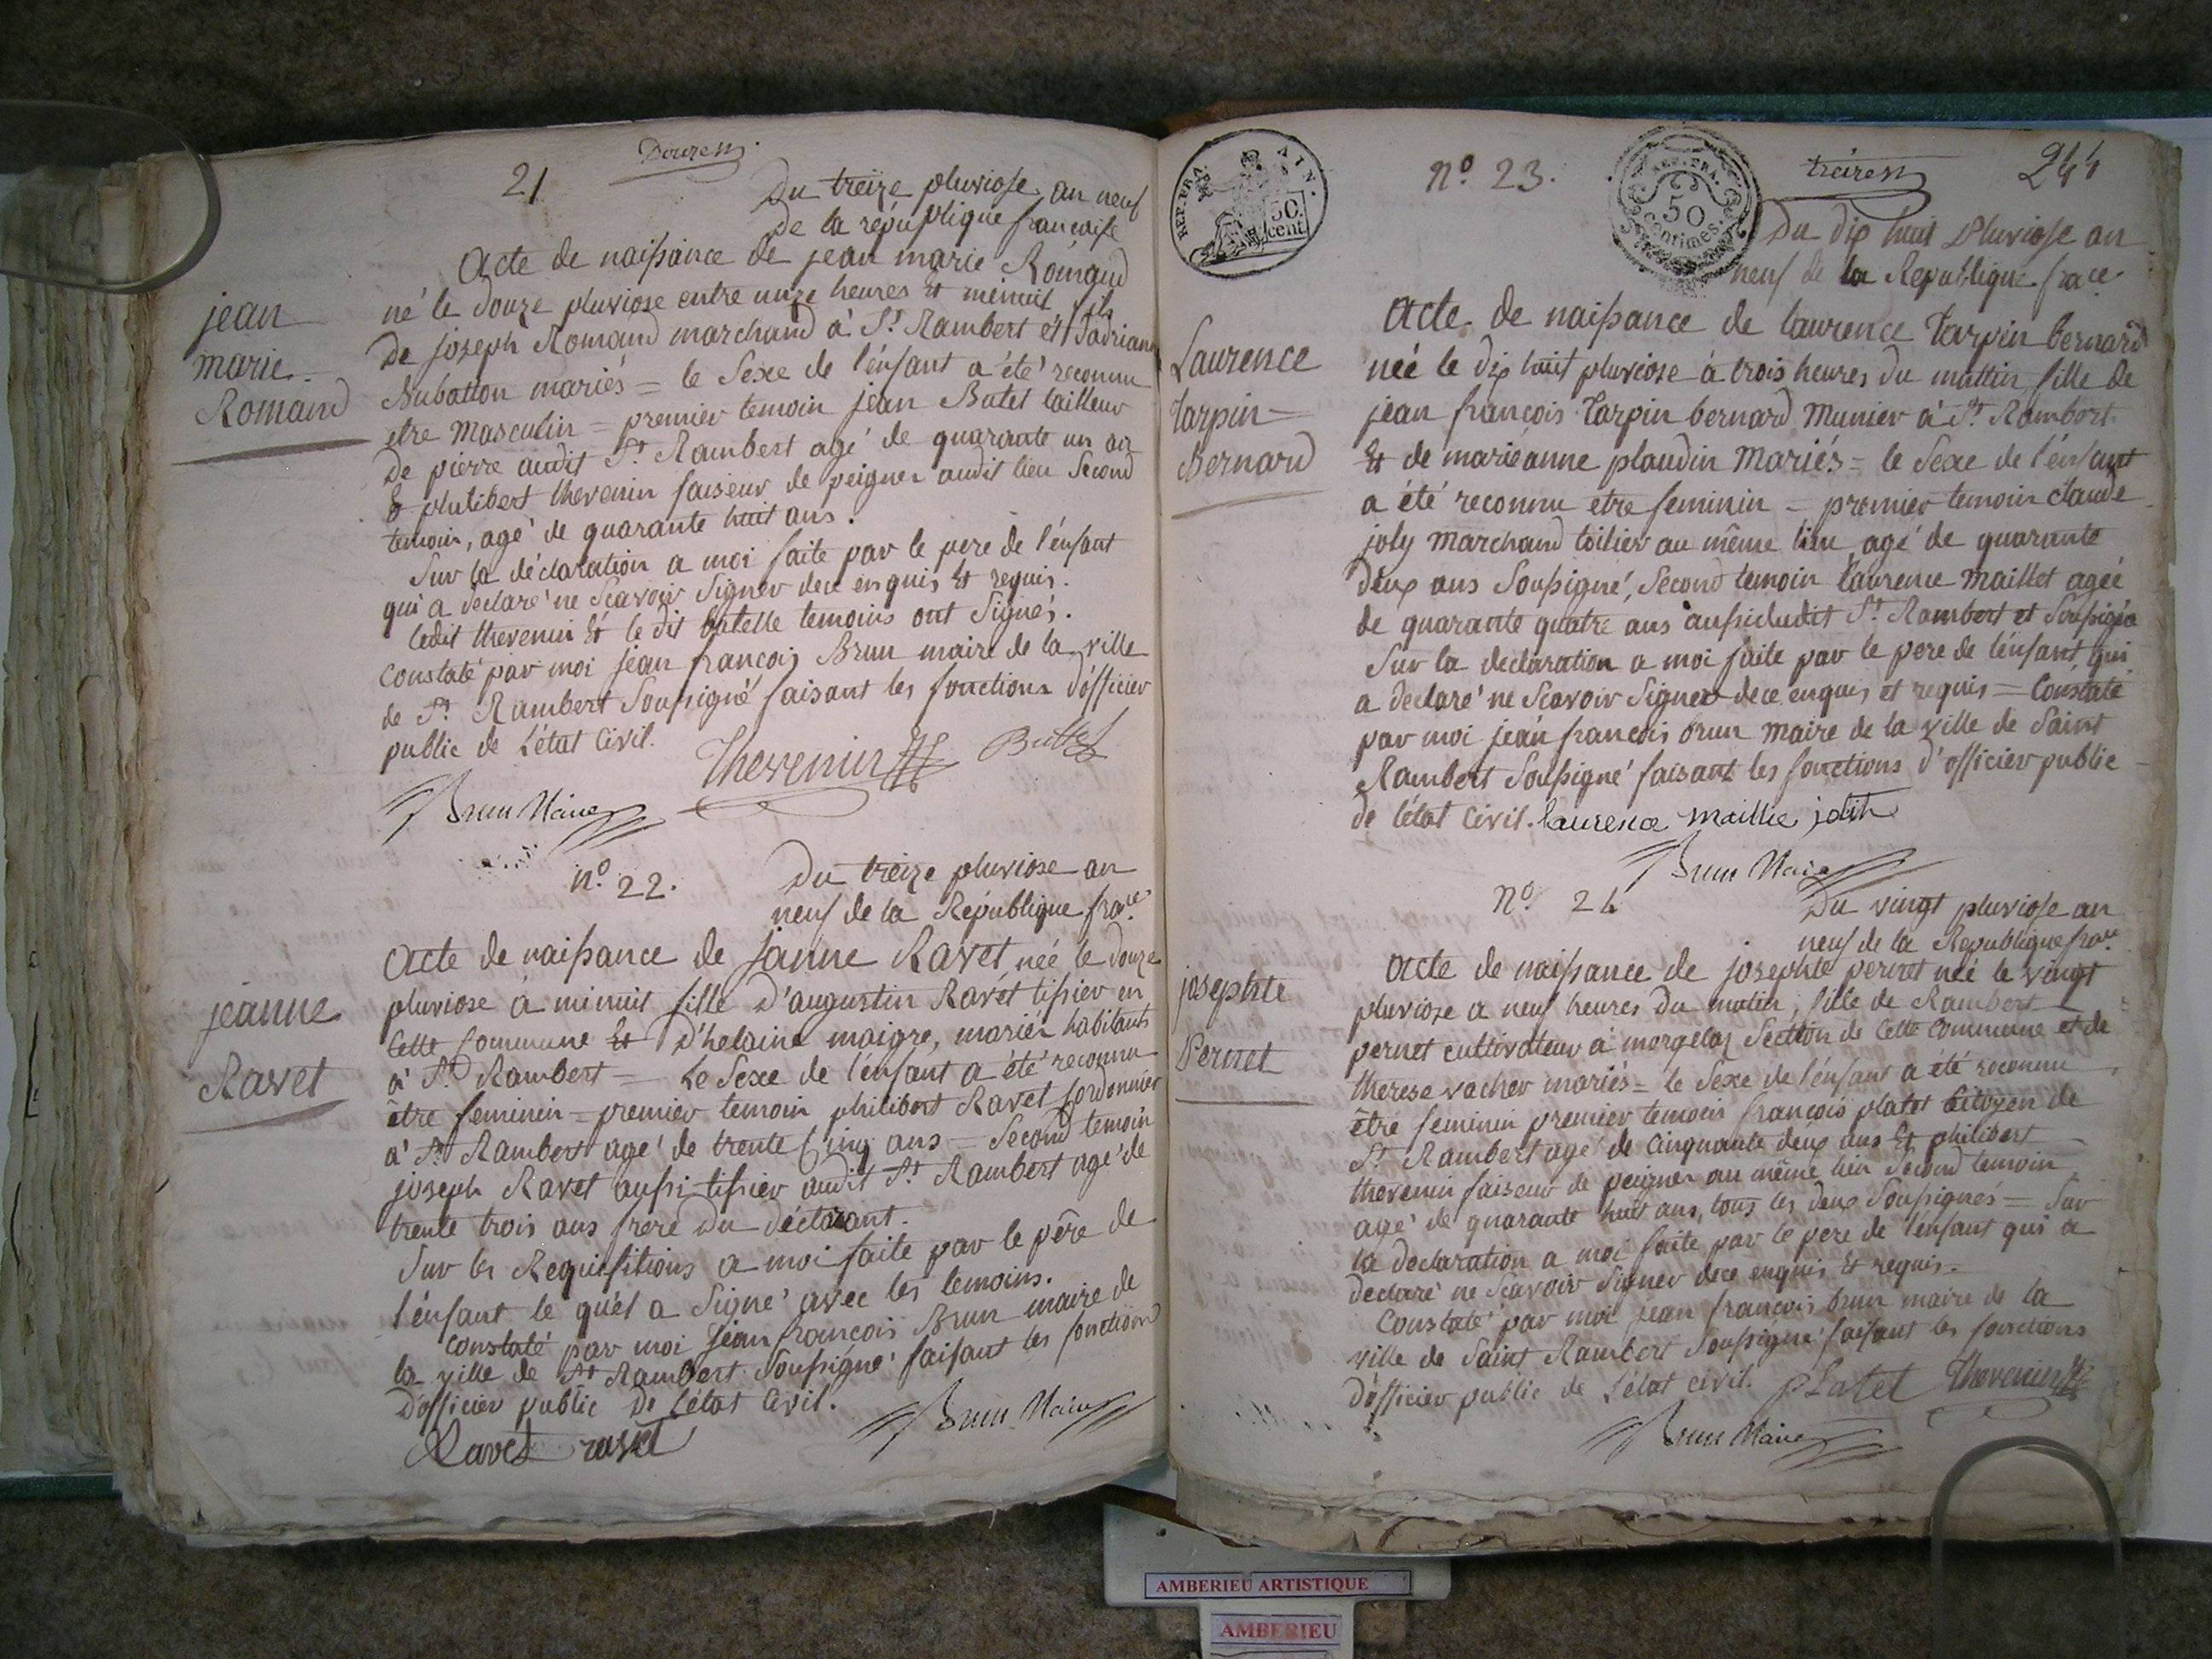 21
Douzen
Du treize pluviose an neuf
de la république française
jean
marie
Romand
Acte de naissance de jean marie Romand
né le douze pluviose entre unze heures et minuit fils
De joseph Romand marchand à St. Rambert et
Dubatton mariés = le Sexe de l'énfant a été reconnu
etre masculin = premier temoin jean Butet tailleur
De pierre audit St. Rambert agé de quarante un an
& philibert thevenin faiseur de peignes audit lieu second
temoin, agé de quarante huit ans.
Sur la déclaration a moi faite par le pere de l'énfant
qui a declaré ne Scavoir Signer dece enquis et requis.
ledit thevenin et le dit butelle temoins ont Signés.
Constaté par moi jean françois Brun maire de la ville
de St. Rambert Soussigné faisant les fonctions d'officier
public de l'état Civil.
Thevenin Buttet
Brun Maire
n.º 22.
Du treize pluviose an
neuf de la République frace.
jeanne
Ravet
Acte de naissance de janne Ravet née le douze
pluviose à minuit fille D'augustin Ravet tissier en
Cette Commune et D'helaine maigre, mariés habitants
à St. Rambert = Le Sexe de l'énfant a été reconnu
être feminin = premier temoin philibert Ravet Cordonnier
à St. Rambert agé de trente Cinq ans = Second temoin
joseph Ravet aussi tissier audit St. Rambert agé de
trente trois ans frere du déclarant.
Sur les Requisitions a moi faite par le père de
l'énfant le quél a Signé avec les temoins.
Constaté par moi Jean françois Brun maire de
la ville de St. Rambert Soussigné faisant les fonctions
D'officier public De l'état Civil.
Brun Maire
Ravet ravet
REP. FRA. AIN.
50. cent.
n.º 23.
REP. FRA.
50
centimes.
treizen
244
Du dix huit Pluviose an
neuf de la Republique frace.
Laurence
tarpin =
Bernard
Acte de naissance de laurence tarpin bernard
née le dix huit pluviose à trois heures du mattin fille de
jean françois tarpin bernard Munier à St. Rambert
Et de marieanne plaudin Mariés = le Sexe de l'énfant
a été reconnu etre feminin = premier temoin claude
joly Marchand toilier au même lieu agé de quarante
deux ans Soussigné, Second temoin laurence maillet agée
de quarante quatre ans aussi dudit St. Rambert et Soussigné
Sur la declaration a moi faite par le pere de l'énfant, qui
a declaré ne Scavoir Signer dece enquis et requis = Constaté
par moi jean françois brun Maire de la ville de Saint
Rambert Soussigné faisant les fonctions d'officier public
de l'état Civil. laurence maillie
Brun Maire
n.º 24
Du vingt pluviose an
neuf de la Republique frace.
josephte
Pernet
Acte de naissance de josephte pernet née le vingt
pluviose a neuf heures du matin, fille de Rambert
pernet cultivateur à morgelaz Section de Cette Commune et de
therese vacher mariés = le Sexe de l'énfant a été reconnu
être feminin premier temoin françois platet Citoyen de
St. Rambert agé de Cinquante deux ans Et philibert
thevenin faiseur de peignes au même lieu Second temoin
agé de quarante huit ans, tous les deux Soussignés = Sur
la declaration a moi faite par le pere de l'énfant qui a
declaré ne Scavoir Signer dece enquis et requis.
Constaté par moi jean françois brun maire de la
ville de Saint Rambert Soussigné faisant les fonctions
d'officier public de l'état civil. pLatet Thevenin
Brun Maire
AMBERIEU ARTISTIQUE
AMBERIEU